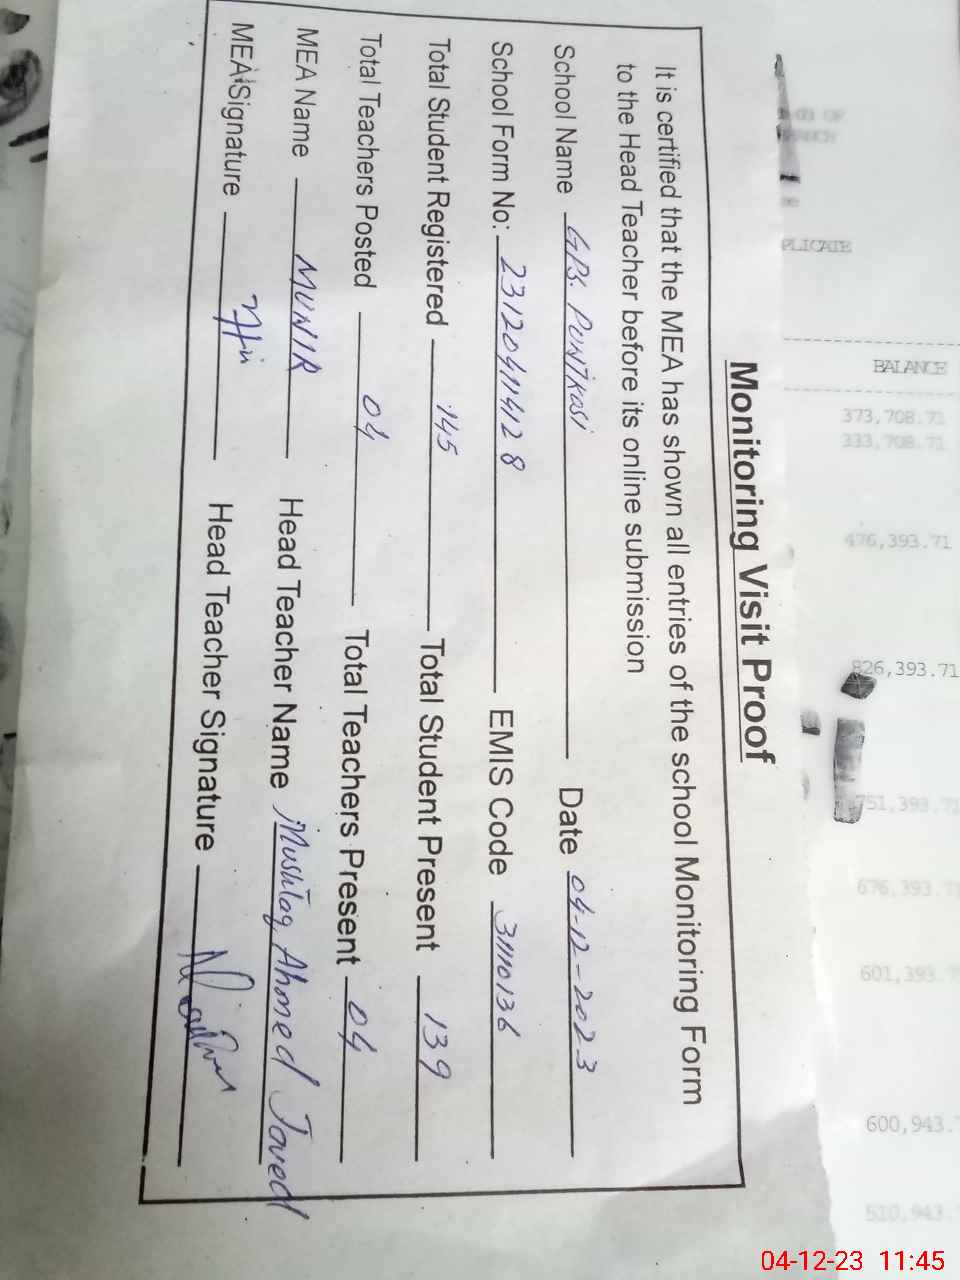 Monitoring Visit Proof
It is certified that the MEA has shown all entries of the school Monitoring Form
to the Head Teacher before its online submission
School Name GPS. PUNJKOSI Date 04-12-2023
School Form No: 231204114128 EMIS Code 31110136
Total Student Registered 145 Total Student Present 139
Total Teachers Posted 04 Total Teachers Present 04
MEA Name MUNIR Head Teacher Name Mushtaq Ahmed Javed
MEA Signature Head Teacher Signature
PLICATE
BALANCE
373,708.71
333,708.71
476,393.71
826,393.71
751,393.71
676,393.7
601,393.7
600,943.7
510,943.
04-12-23 11:45